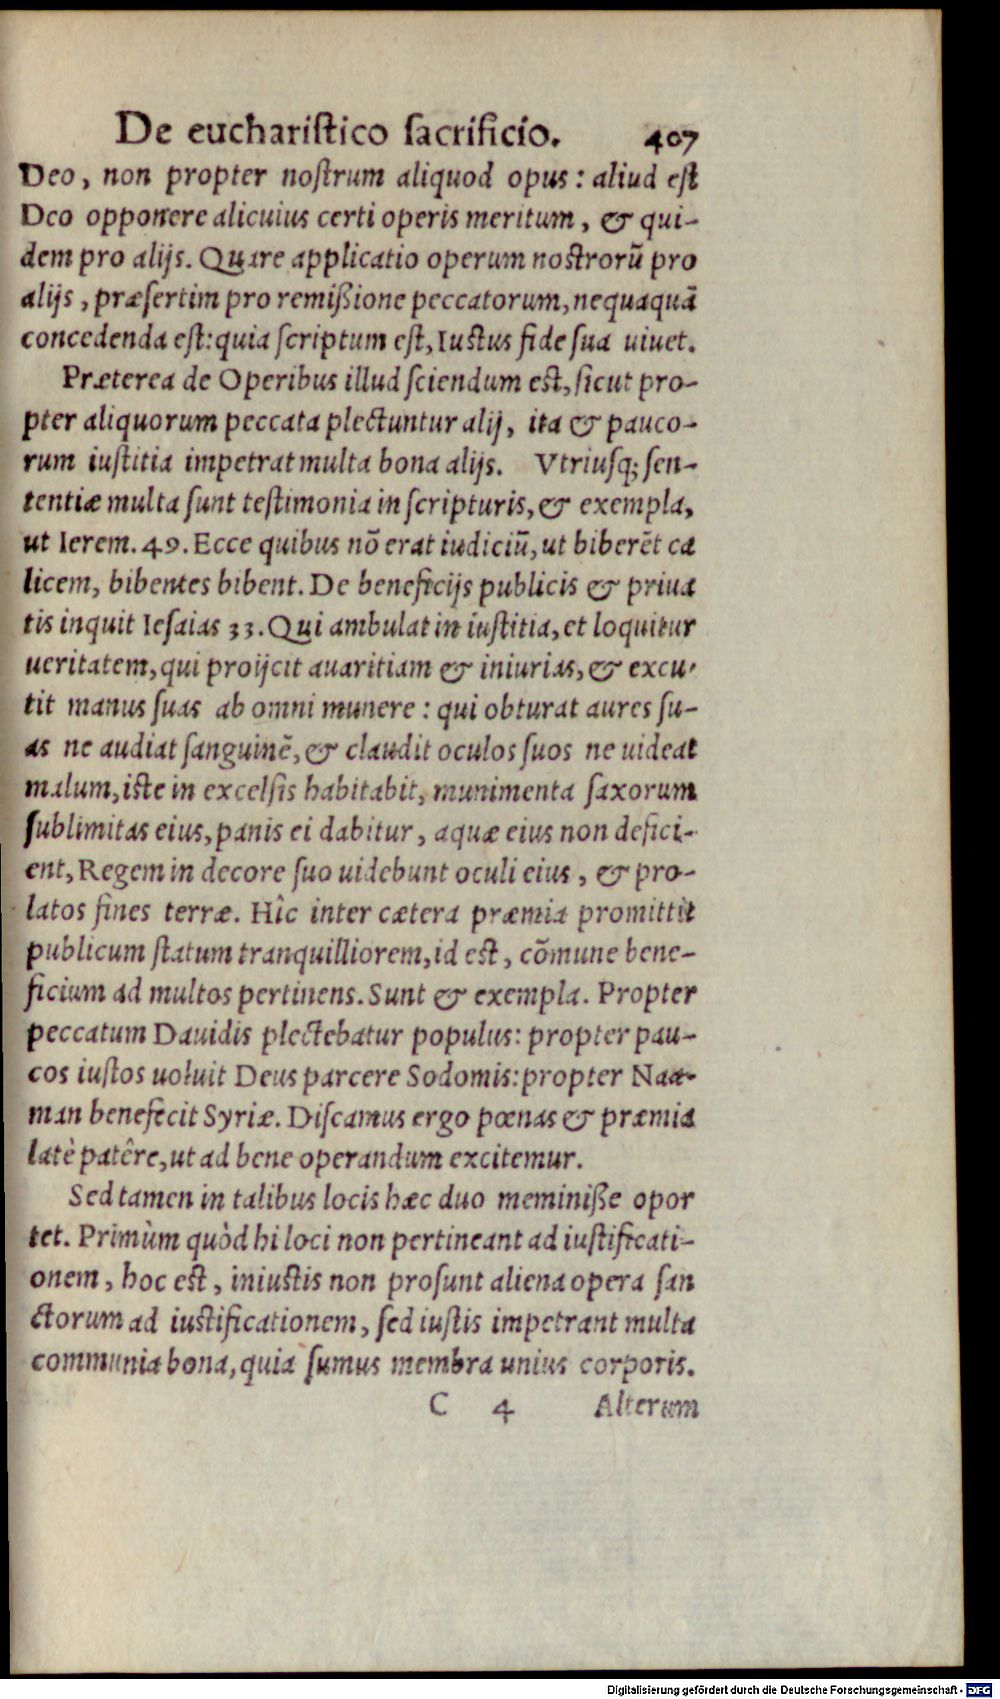 De euchariſtico ſacrificio. 407
Deo, non propter noſtrum aliquod opus: aliud eſt
Deo opponere alicuius certi operis meritum, & qui-
dem pro alijs. Quare applicatio operum noſtrorũ pro
alijs, præſertim pro remißione peccatorum, nequaquã
concedenda eſt: quia ſcriptum eſt, Iuſtus fide ſua uiuet.
Præterea de Operibus illud ſciendum eſt, ſicut pro-
pter aliquorum peccata plectuntur alij, ita & pauco-
rum iuſtitia impetrat multa bona alijs. Vtriuſq; ſen-
tentiæ multa ſunt teſtimonia in ſcripturis, & exempla,
ut Ierem. 49. Ecce quibus nõ erat iudiciũ, ut biberẽt ca
licem, bibentes bibent. De beneficijs publicis & priua
tis inquit Ieſaias 33. Qui ambulat in iuſtitia, et loquitur
ueritatem, qui proijcit auaritiam & iniurias, & excu-
tit manus ſuas ab omni munere: qui obturat aures ſu-
as ne audiat ſanguinẽ, & claudit oculos ſuos ne uideat
malum, iſte in excelſis habitabit, munimenta ſaxorum
ſublimitas eius, panis ei dabitur, aquæ eius non defici-
ent, Regem in decore ſuo uidebunt oculi eius, & pro-
latos fines terræ. Hîc inter cætera præmia promittit
publicum ſtatum tranquilliorem, id eſt, cõmune bene-
ficium ad multos pertinens. Sunt & exempla. Propter
peccatum Dauidis plectebatur populus: propter pau-
cos iuſtos uoluit Deus parcere Sodomis: propter Naa-
man benefecit Syriæ. Diſcamus ergo pœnas & præmia
latè patêre, ut ad bene operandum excitemur.
Sed tamen in talibus locis hæc duo meminiße opor
tet. Primùm quòd hi loci non pertineant ad iuſtificati-
onem, hoc eſt, iniuſtis non proſunt aliena opera ſan
ctorum ad iuſtificationem, ſed iuſtis impetrant multa
communia bona, quia ſumus membra unius corporis.
C 4 Alterum
Digitalisierung gefördert durch die Deutsche Forschungsgemeinschaft - DFG